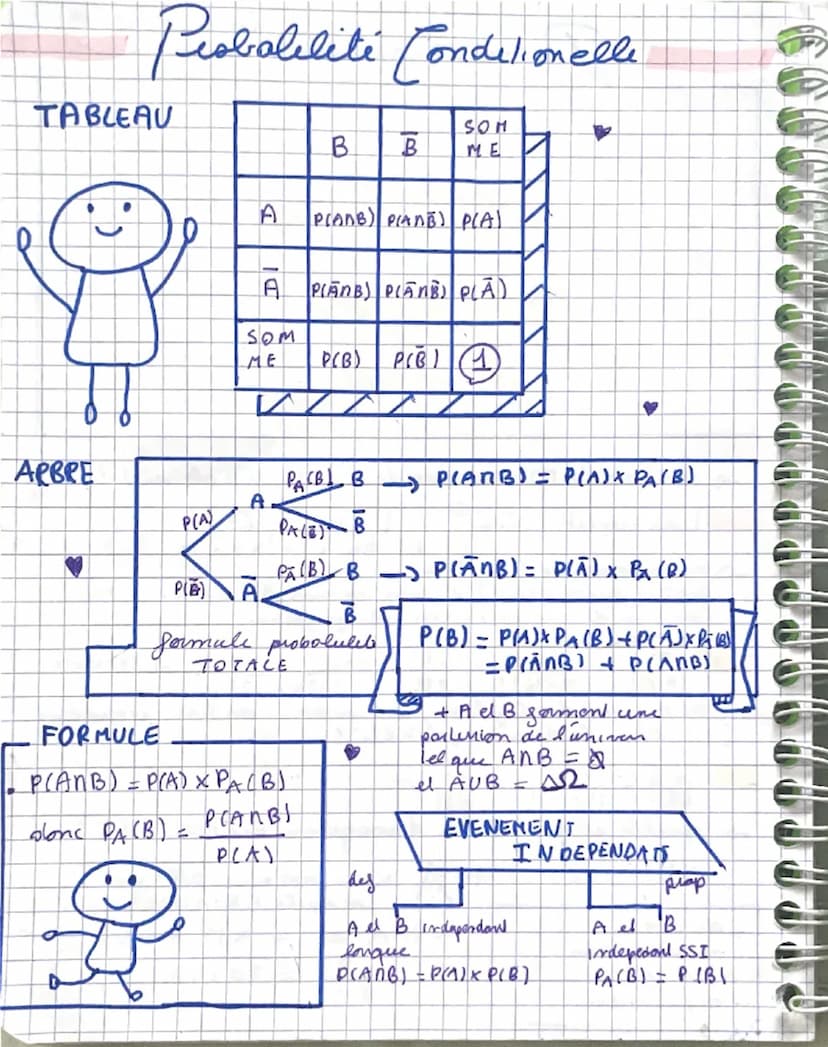 Probabilité Conditionelle
TABLEAU
B B̅ SOM ME
A P(A∩B) P(A∩B̅) P(A)
A̅ P(A̅∩B) P(A̅∩B̅) P(A̅)
SOM ME P(B) P(B̅) 1
ARBRE
P(A) A P_A(B) B → P(A∩B) = P(A) x P_A(B)
P_A(B̅) B̅
P(B̅) A̅ P_A̅(B) B → P(A̅∩B) = P(A̅) x P_A(B)
B̅
formule probabilité
TOTALE
P(B) = P(A) x P_A(B) + P(A̅) x P_A̅(B)
= P(A̅∩B) + P(A∩B)
+ A et B forment une
partition de l'univers
tel que A∩B = ∅
et A∪B = Ω
FORMULE
. P(A∩B) = P(A) x P_A(B)
donc P_A(B) = P(A∩B) / P(A)
EVENEMENT
INDEPENDATS
def
A et B independant
lorsque
P(A∩B) = P(A) x P(B)
prop
A et B
independant SSI
P_A(B) = P(B)